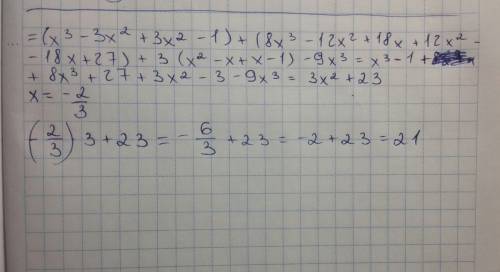 ... = (x³ - 3x² + 3x² - 1) + (8x³ - 12x² + 18x + 12x² -
- 18x + 27) + 3 (x² - x + x - 1) - 9x³ = x³ - 1 +
+ 8x³ + 27 + 3x² - 3 - 9x³ = 3x² + 23
x = - 2/3
(- 2/3) 3 + 23 = - 6/3 + 23 = -2 + 23 = 21